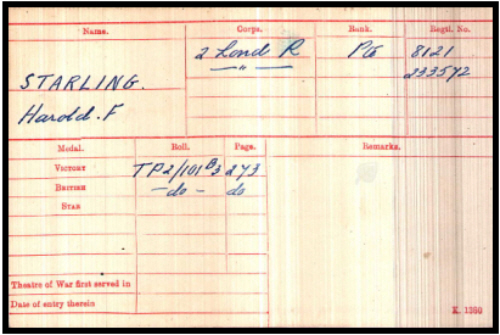 Name. Corps. Rank. Regtl. No.
2 Lond R Pte 8121
— " — 233572
STARLING.
Harold. F
Medal. Roll. Page. Remarks.
VICTORY TP2/101B3 273
BRITISH - do - do
STAR
Theatre of War first served in
Date of entry therein
K. 1380